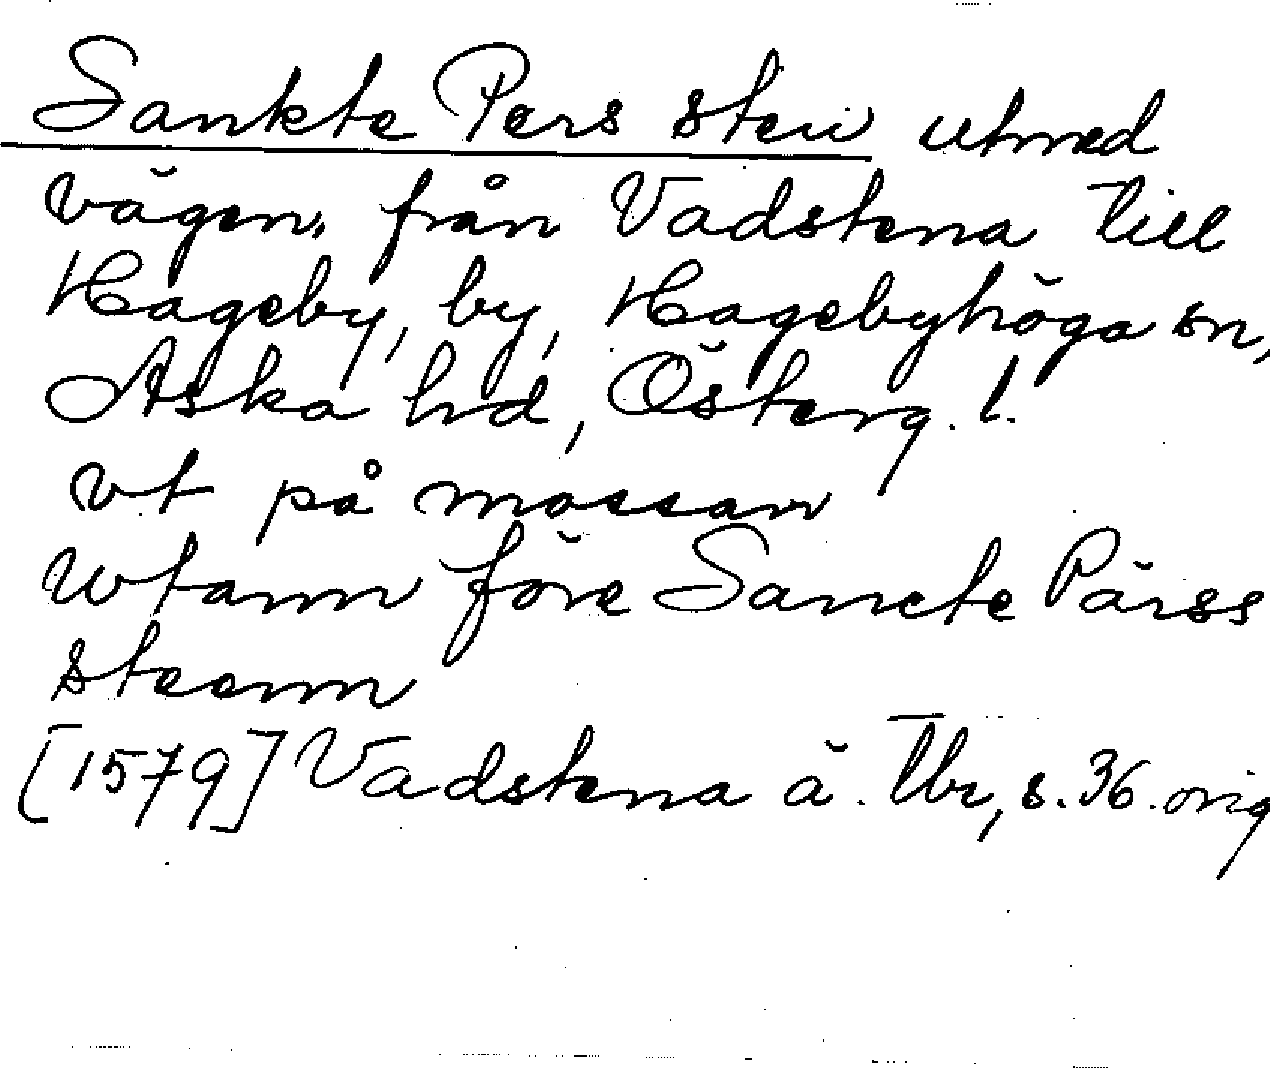 Sankte Pers sten utmed
vägen från Vadstena till
Hageby, by, Hagebyhöga sn,
Aska hd, Österg. l.
vt på mossan
Wtann före Sancte Pärss
steenn
[1579] Vadstena ä. Tbr, s. 36. orig